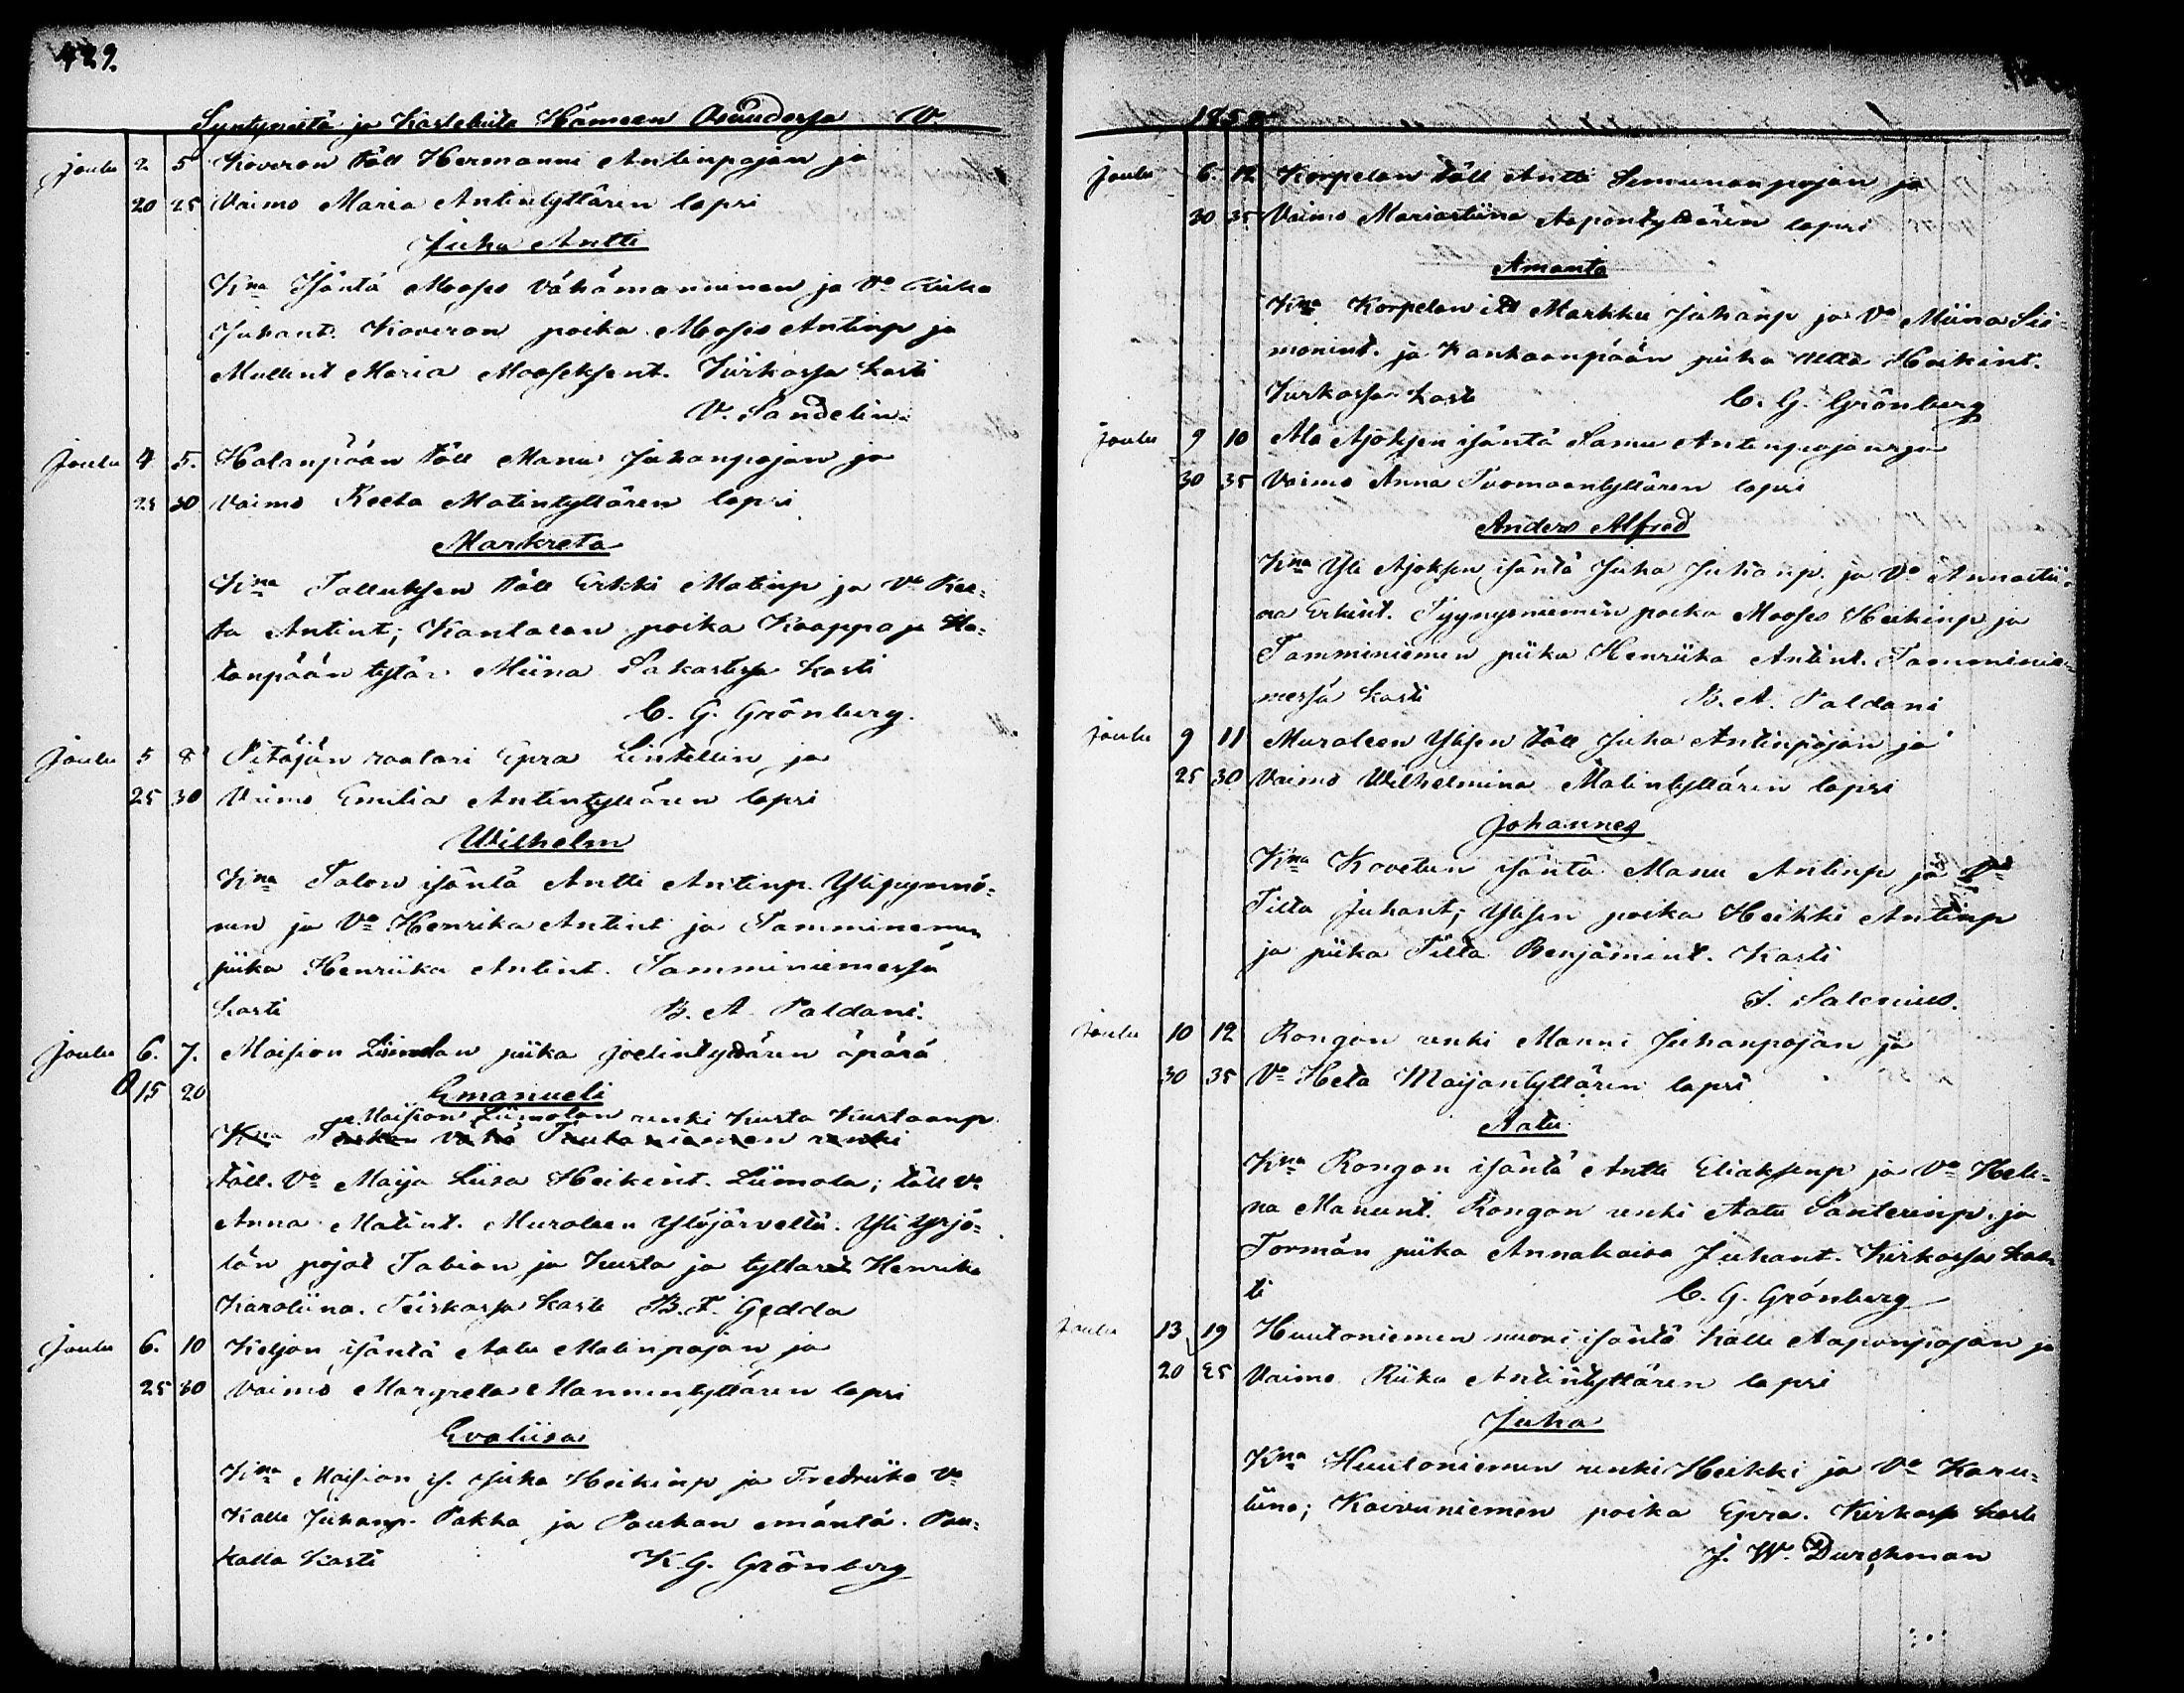 429.
Syntyneitä ja Kastetuita Hämeen Osuudessa V.
Joulu 2 5 Koveron töll Hermanni Antinpojan ja
20 25 Vaimo Maria Antintyttären lapsi
Juha Antti
Kna Isäntä Mooses Vähämanninen ja Vo
Juhant. Koveron poika Mooses Antinp ja
Mullint Maria Mooseksent. Kirkossa kasti
V. Sandelin.
Joulu 4 5. Hatanpään töll Manu Juhanpojan ja
25 30 Vaimo Reeta Matintyttären lapsi
Markreta
Kna Talluksen töll Erkki Matinp ja Vo Ree-
ta Antint; Kantalan poika Kaappo ja Ha-
tanpään tytär Miina Sakastissa kasti
C. G. Grönberg.
Joulu 5 8 Pitäjän raatari Epra Lintellin ja
25 30 Vaimo Emilia Antintyttären lapsi
Wilhelm
Kna Talon isäntä Antti Antinp. Ylipynnö-
nen ja Vo Henrika Antint ja Tamminemen
piika Henriika Antint. Tamminiemessä
kasti B. A. Paldani.
Joulu 6. 7. Moision Liimolan piika Joelintyttären äpärä
15 20 Emanueli
Moision Liimolan renki Kusta Kustaanp.
Kna Vähä renki
töll. Vo Maija Liisa Heikint. Liimola; töll Vo
Anna Matint. Muroleen Ylöjärveltä. Yli Yrjö-
län pojat Fabian ja Kusta ja tyttäret Henrika
Karoliina. Teiskossa kasti B. F. Gedda
Joulu 6. 10 Keljon isäntä Aatu Matinpojan ja
25 30 Vaimo Margreta Mannintyttären lapsi
Evaliisa
Kna Moision is. Juha Heikinp ja Fredriika Vo
Kalle Juhanp. Pakka ja Paukan emäntä. Pau-
kalla kasti K. G. Grönberg
1858
Joulu 6. 12 Korpelan töll Antti Simunanpojan ja
30 35 Vaimo Mariastiina Aapontyttären lapsi
Amanta
Kna Korpelan it Markku Juhanp ja Vo Miina Si-
monint. ja Kankaanpään piika Heikint.
Kirkossa kasti C. G. Grönberg
Joulu 9 10 Ala Ajoksen isäntä Samu Antinpojan ja
30 35 Vaimo Anna Tuomaantyttären lapsi
Anders Alfred
Kna Yli Ajoksen isäntä Juha Juhanp. ja Vo Annastii-
na Erkint. Tyynyniemen poika Mooses Heikinp ja
Tamminiemen piika Henriika Antint. Tamminie-
messä kasti B. A. Paldani
Joulu 9 11 Muroleen Ylisen töll Juha Antinpojan ja
25 30 Vaimo Wilhelmina Matintyttären lapsi
Johannes
Kna Kovelan isäntä Manu Antinp ja Vo
Tilta Juhant; Ylisen poika Heikki Antinp
ja piika Tilta Benjamint. Kasti
J. Salenius.
Joulu 10 12 Rongon renki Manni Juhanpojan ja
30 35 Vo Heta Maijantyttären lapsi
Aatu
Kna Rongon isäntä Antti Eliaksenp ja Vo Hele-
na Manunt. Rongon renki Aatu Santerinp. ja
Tormän piika Annakaisa Juhant. Kirkossa kas-
ti C. G. Grönberg
Joulu 13 19 Huutoniemen nuori isäntä Kalle Aaponpojan ja
20 25 Vaimo Riika Antintyttären lapsi
Juha
Kna Huutoniemen renki Heikki ja Vo Karu-
liina; Koivuniemen poika Epra. Kirkossa kasti
J. W. Durchman